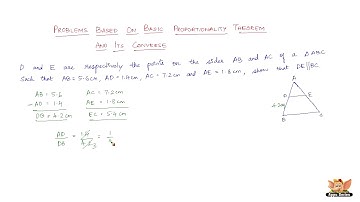 Problems Based on Basic Proportionality Theorem
And Its Converse
D and E are respectively the points on the sides AB and AC of a ΔABC
Such that AB = 5.6cm, AD = 1.4cm, AC = 7.2cm and AE = 1.8cm, show that DE//BC
AB = 5.6 AC = 7.2cm
- AD = 1.4 AE = 1.8cm
DB = 4.2cm EC = 5.4cm
AD/DB = 1.4/4.2 3 = 1/
A
D E
4.2cm
B C